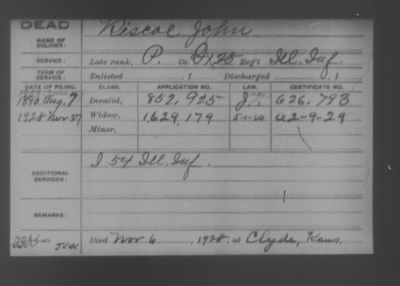 DEAD
NAME OF SOLDIER:
Riscoe John
SERVICE:
Late rank, P. Co. D 125 Reg't Ill. Inf.
TERM OF SERVICE:
Enlisted , 1 Discharged , 1
DATE OF FILING. CLASS. APPLICATION NO. LAW. CERTIFICATE NO.
1890 Aug. 7 Invalid, 852,925 J. 626.793
1928 Nov 27 Widow, 1,629,179 5-1-20 a 2-9-29
Minor,
ADDITIONAL SERVICES:
I 54 Ill. Inf.
REMARKS:
Died Nov 6, 1928, at Clyde, Kans.